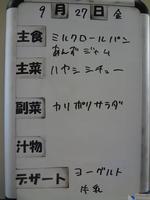 9月27日 金
主食 ミルクロールパン
あんずジャム
主菜 ハヤシシチュー
副菜 カリポリサラダ
汁物
デザート ヨーグルト
牛乳